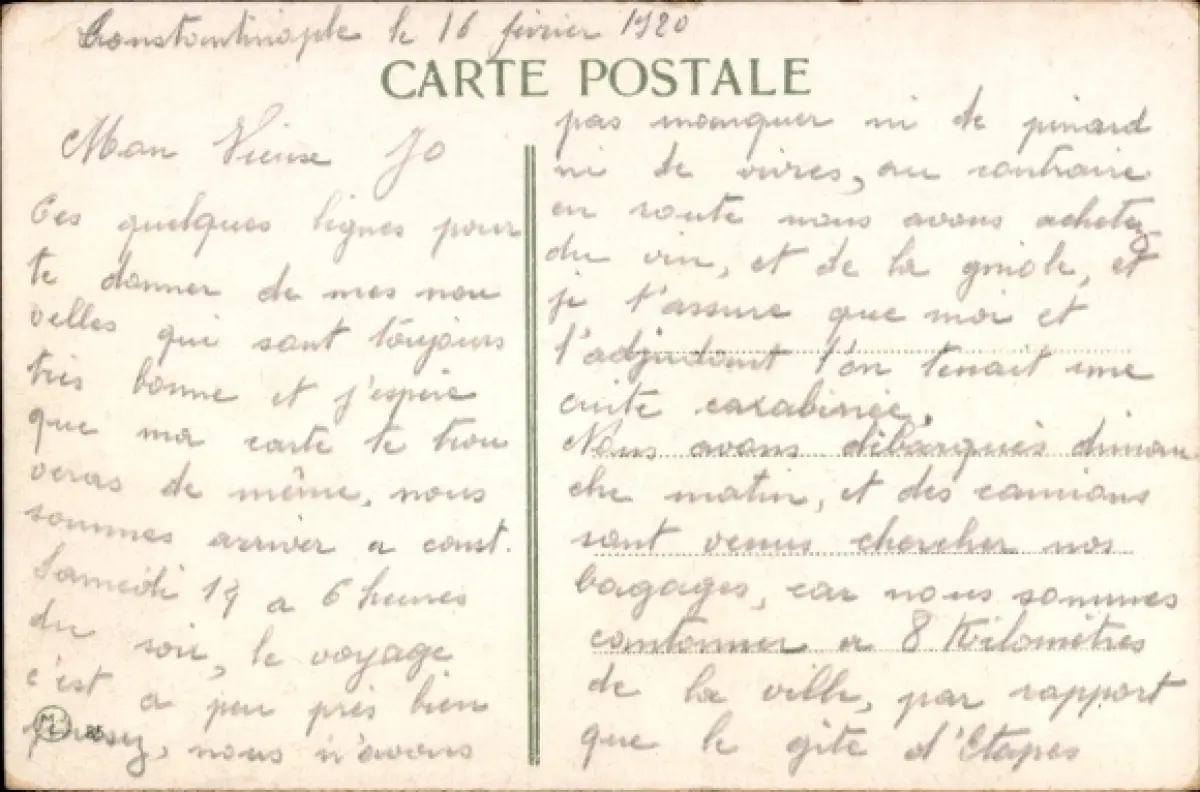 Constantinople le 16 février 1920
CARTE POSTALE
Mon Vieux Jo
Ces quelques lignes pour
te donner de mes nou
velles qui sont toujours
très bonne et j'espère
que ma carte te trou
veras de même, nous
sommes arriver a const.
Samedi 14 a 6 heures
du soir, le voyage
c'est a peu près bien
passez, nous n'avons
pas manquer ni de pinard
ni de vivres, au contraire
en route nous avons achetez
du vin, et de la gniole, et
je t'assure que moi et
l'adjudant l'on tenait une
cuite carabinée.
Nous avons débarqués diman
che matin, et des camions
sont venus chercher nos
bagages, car nous sommes
cantonner a 8 Kilomètres
de la ville, par rapport
que le gite d'Etapes